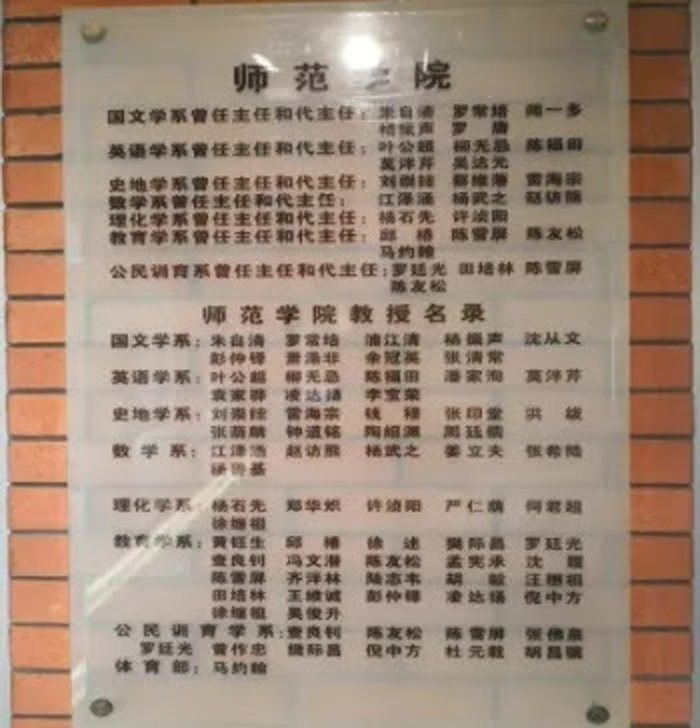 师范学院
国文学系曾任主任和代主任：朱自清 罗常培 闻一多
杨振声 罗庸
英语学系曾任主任和代主任：叶公超 柳无忌 陈福田
莫泮芹 吴达元
史地学系曾任主任和代主任：刘崇鋐 蔡维藩 雷海宗
数学系曾任主任和代主任：江泽涵 杨武之 赵访熊
理化学系曾任主任和代主任：杨石先 许浈阳
教育学系曾任主任和代主任：邱椿 陈雪屏 陈友松
马约翰
公民训育系曾任主任和代主任：罗廷光 田培林 陈雪屏
陈友松
师范学院教授名录
国文学系：朱自清 罗常培 浦江清 杨振声 沈从文
彭仲铎 萧涤非 余冠英 张清常
英语学系：叶公超 柳无忌 陈福田 潘家洵 莫泮芹
袁家骅 凌达扬 李宝荣
史地学系：刘崇鋐 雷海宗 钱穆 张印堂 洪绂
张荫麟 钟道铭 陶绍渊 周廷儒
数学系：江泽涵 赵访熊 杨武之 姜立夫 张希陆
杨善基
理化学系：杨石先 郑华炽 许浈阳 严仁荫 何君超
徐继祖
教育学系：黄钰生 邱椿 徐述 樊际昌 罗廷光
查良钊 冯文潜 陈友松 孟宪承 沈履
陈雪屏 齐泮林 陆志韦 胡毅 汪懋祖
田培林 王维诚 彭仲铎 凌达扬 倪中方
徐继祖 吴俊升
公民训育学系：查良钊 陈友松 陈雪屏 张佛泉
罗廷光 曾作忠 樊际昌 倪中方 杜元载 胡昌骐
体育部：马约翰